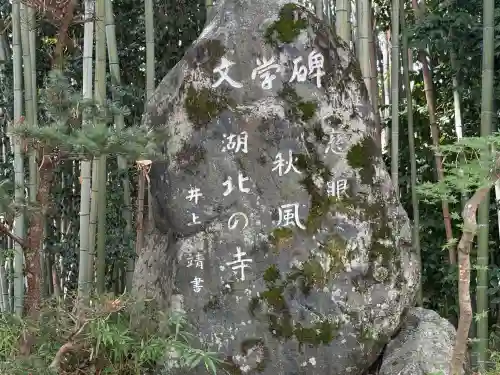 文学碑
慈眼
秋風
湖北の寺
井上靖書